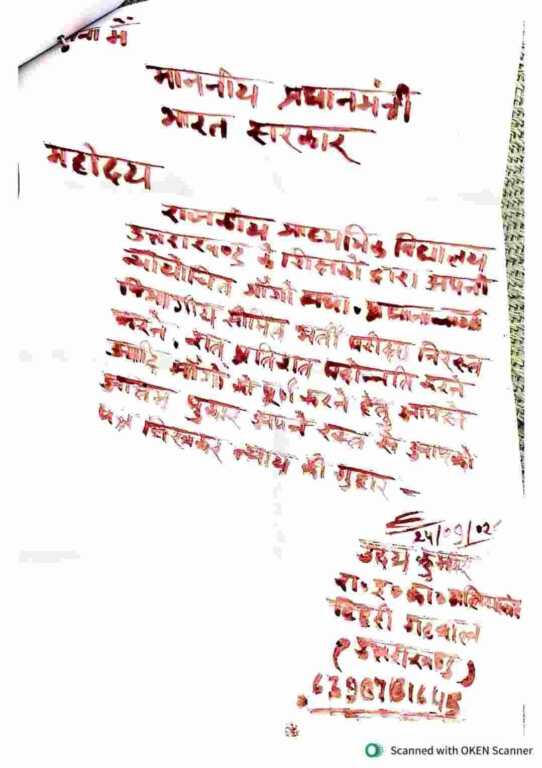 सेवा में
माननीय प्रधानमंत्री
भारत सरकार
महोदय
राजकीय माध्यमिक विद्यालय
उत्तराखण्ड के शिक्षकों द्वारा अपनी
न्यायोचित माँगों यथा.
विभागीय सीमित भर्ती परीक्षा निरस्त
करने, शत प्रतिशत पदोन्नति करने
आदि माँगों को पूर्ण करने हेतु आपसे
अंतिम पुकार अपने रक्त से आपको
पत्र लिखकर न्याय की गुहार -
24/09/02
उदय कुमार
रा॰इ॰का॰
टिहरी गढवाल
(उत्तराखण्ड)
Scanned with OKEN Scanner